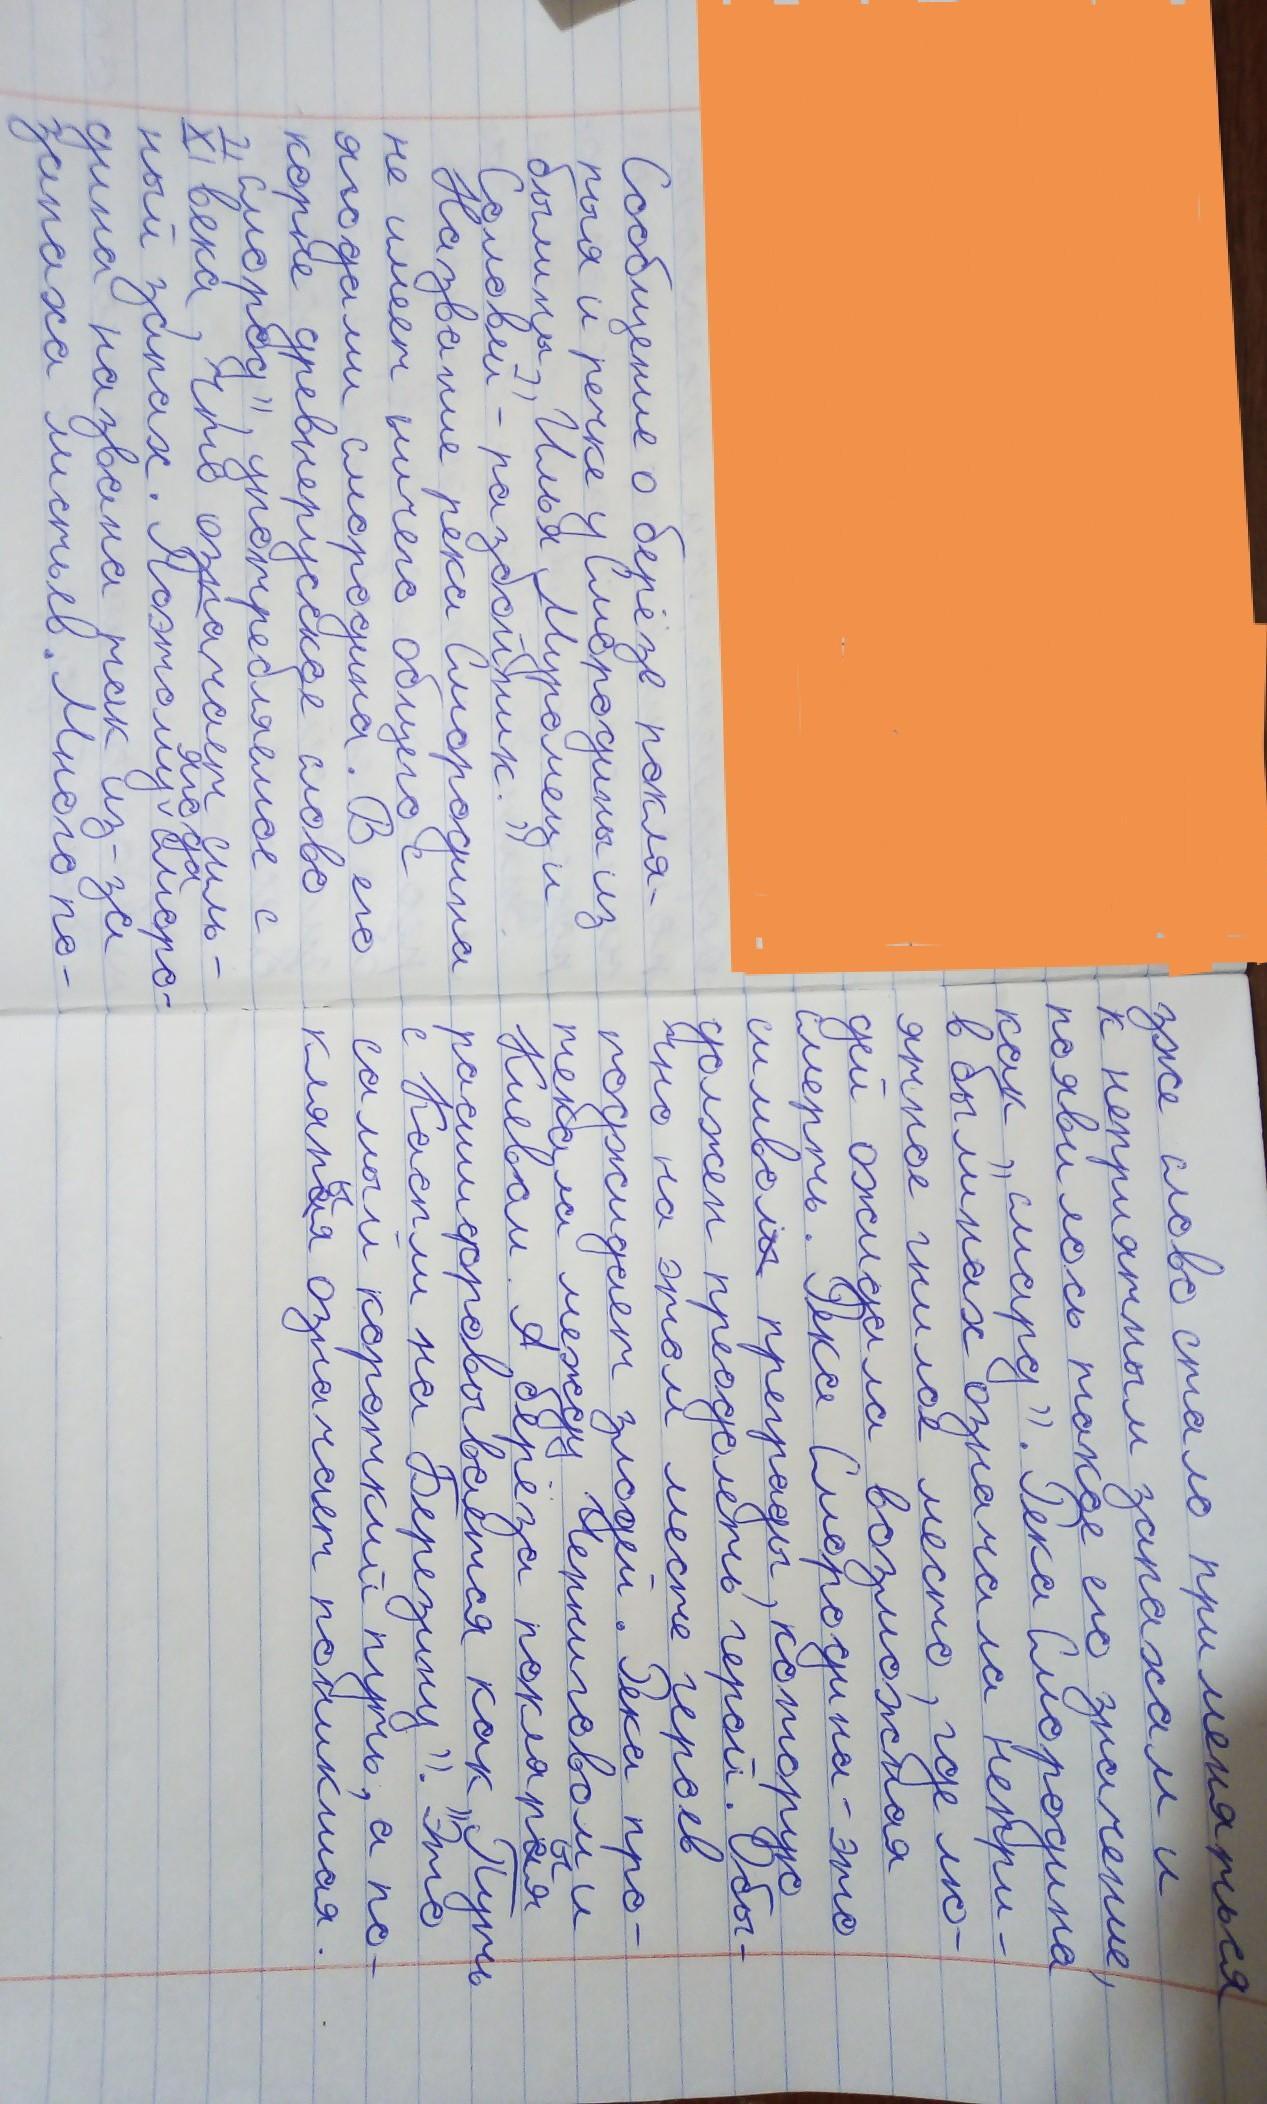 Сообщение о берёзе покля-
пыя и речке у Смородины из
былины „Илья Муромец и
Соловей - разбойник."
Название река Смородина
не имеет ничего общего с
ягодами смородина. В его
корне древнеруское слово
„смород", употребляемое с
XI века, что означает силь-
ный запах. Поэтому ягода сморо-
дина названа так из-за
запаха листьев. Много по-
зже слово стало применяться
к неприятным запахам и
появилось также его значение,
как „смард". Река Смородина
в былинах означала непри-
ятное гнилое место, где лю-
дей ожидала возможная
смерть. Река Смородина - это
символ преграды, которую
должен преодолеть герой. Обы-
чно на этом месте героев
поджидает злодей. Река про-
текала между Черниговом и
Киевом. А берёза покляпыя
расшифровывается как „Путь
с Каспли на Березину". Это
самый короткий путь, а по-
кляпыя означает поникшая.